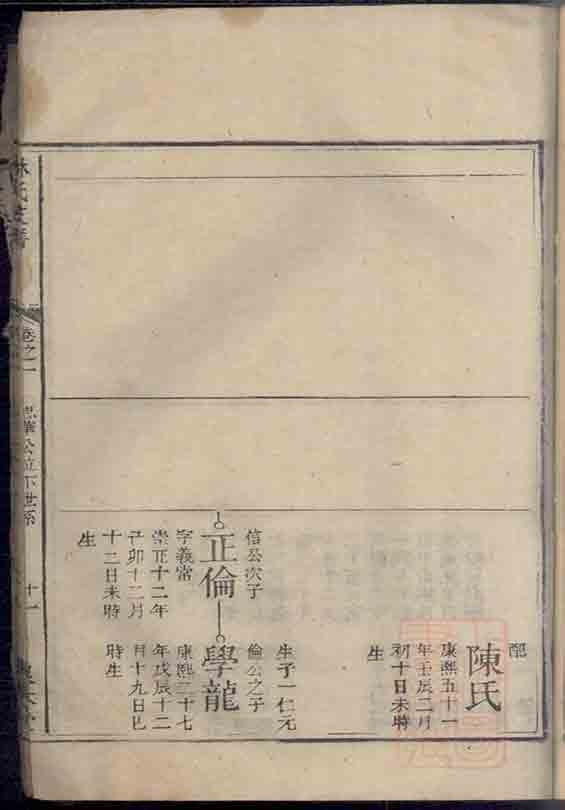 配
陳氏
康熙五十一
年壬辰二月
初十日未時
生
生子一仁元
信公次子
正倫
字義當
崇正十二年
己卯十二月
十二日未時
生
倫公之子
學龍
康熙二十七
年戊辰十二
月十九日巳
時生
林氏支譜
卷之一
公位下世系
十一